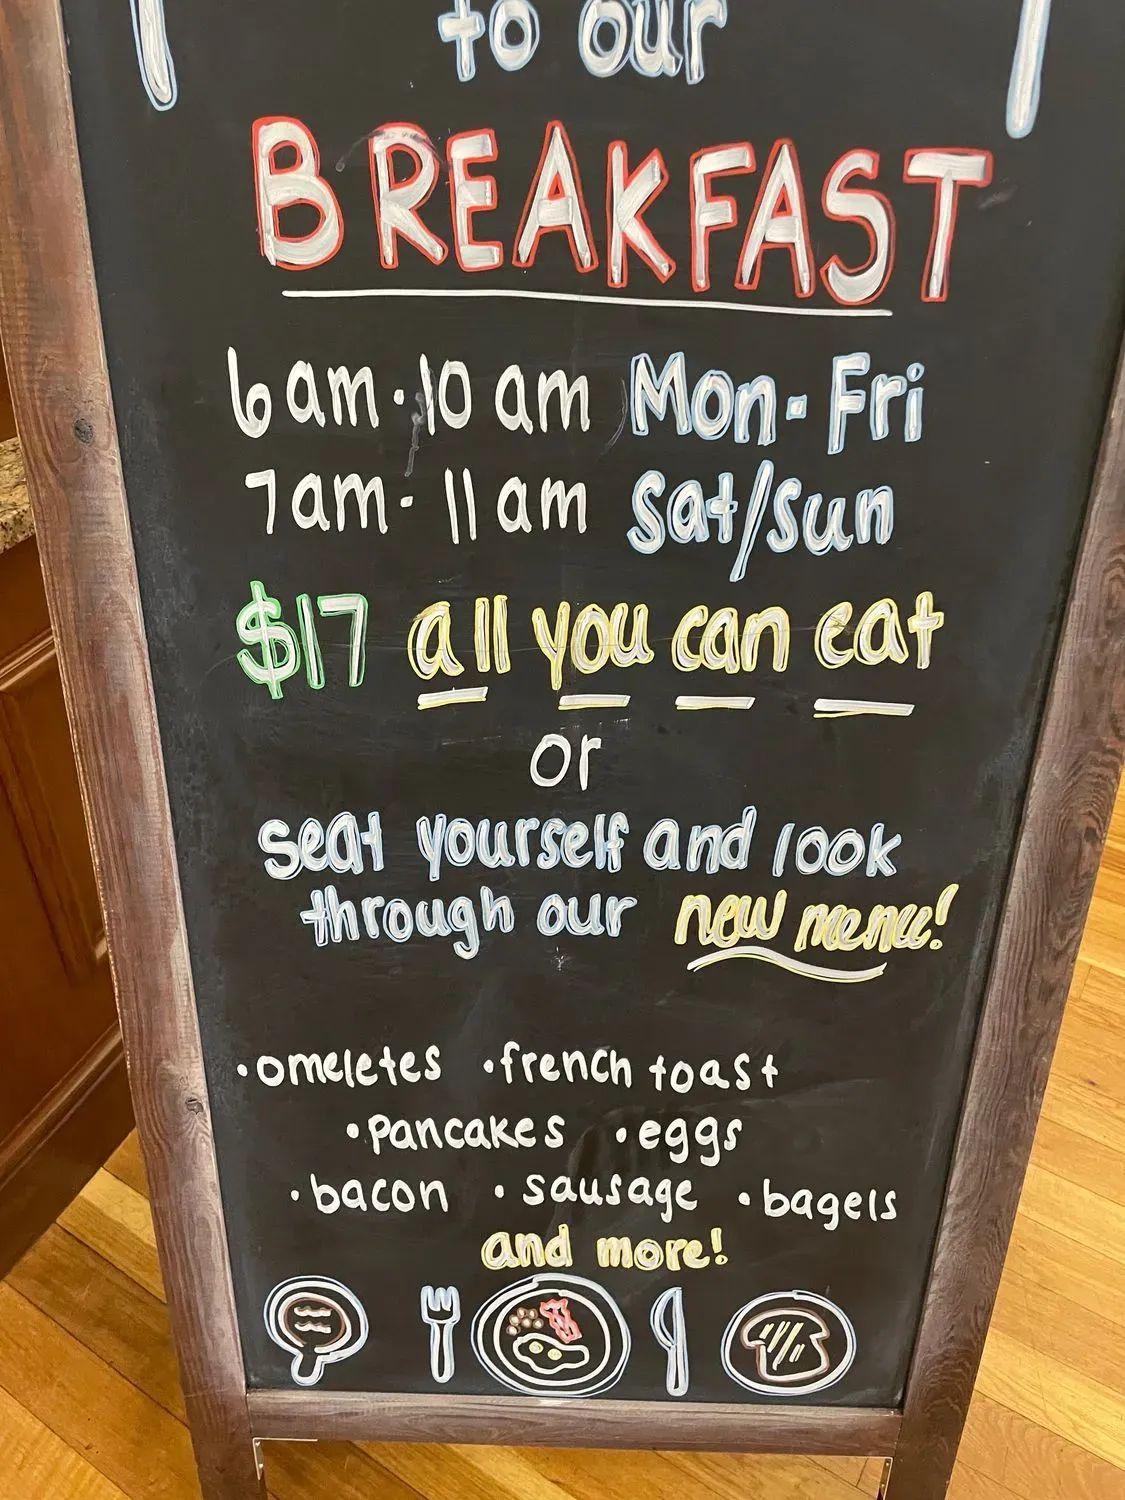 to our
BREAKFAST
6am-10am Mon-Fri
7am-11am Sat/Sun
$17 all you can eat
or
seat yourself and look
through our new menu!
•omeletes •french toast
•pancakes •eggs
•bacon •sausage •bagels
and more!